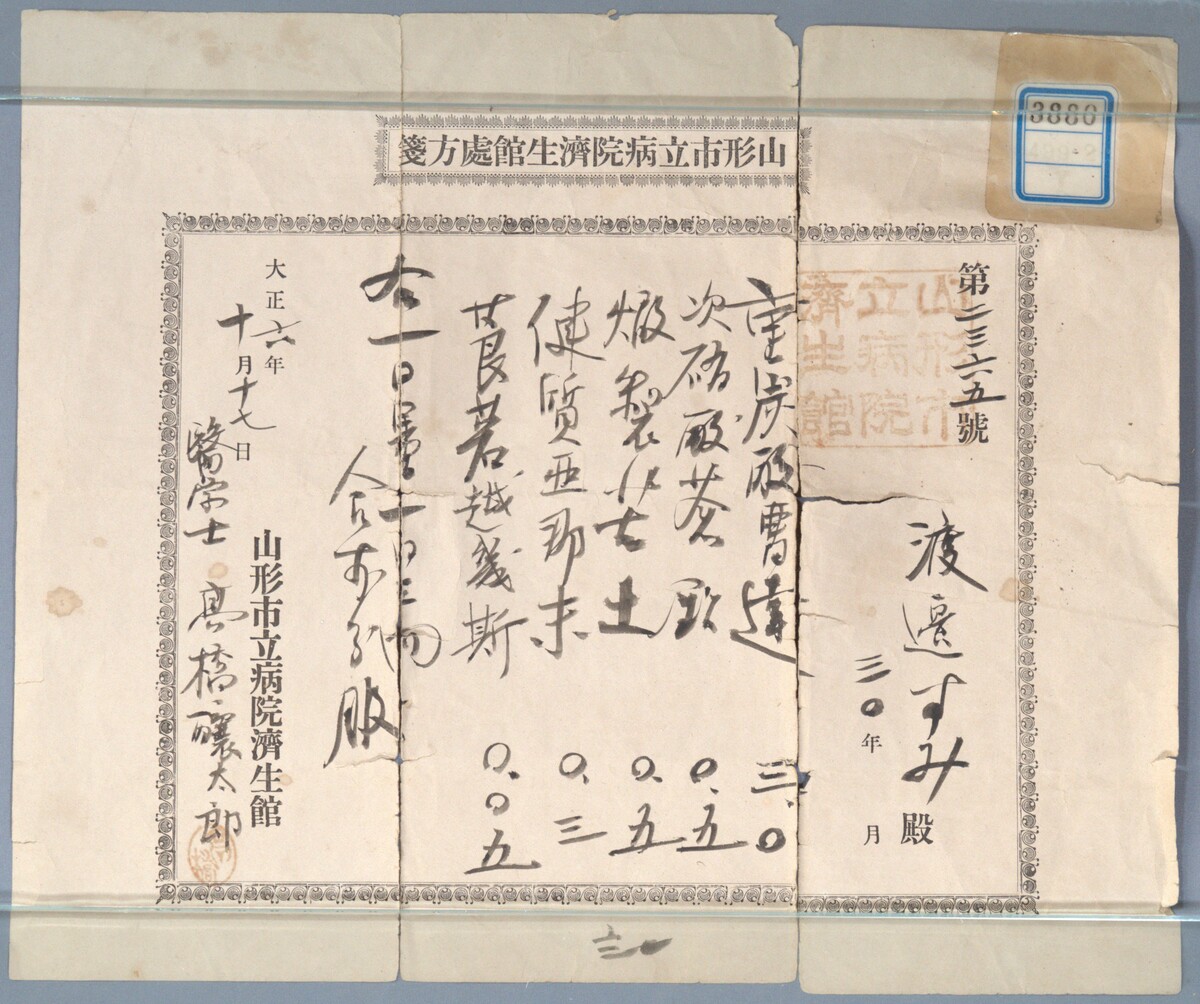 山形市立病院濟生館處方箋
3880
第二三六五號
山形市
立病院
濟生館
渡邉すみ殿
三〇年 月
重炭酸曹達 三.〇
次硝酸蒼鉛 〇.五
煅製苦土 〇.五
健質亜那末 〇.三
莨菪越幾斯 〇.〇五
右一日量一日三回
分服
大正六年
十月十七日
山形市立病院濟生館
醫学士 髙橋釀太郎